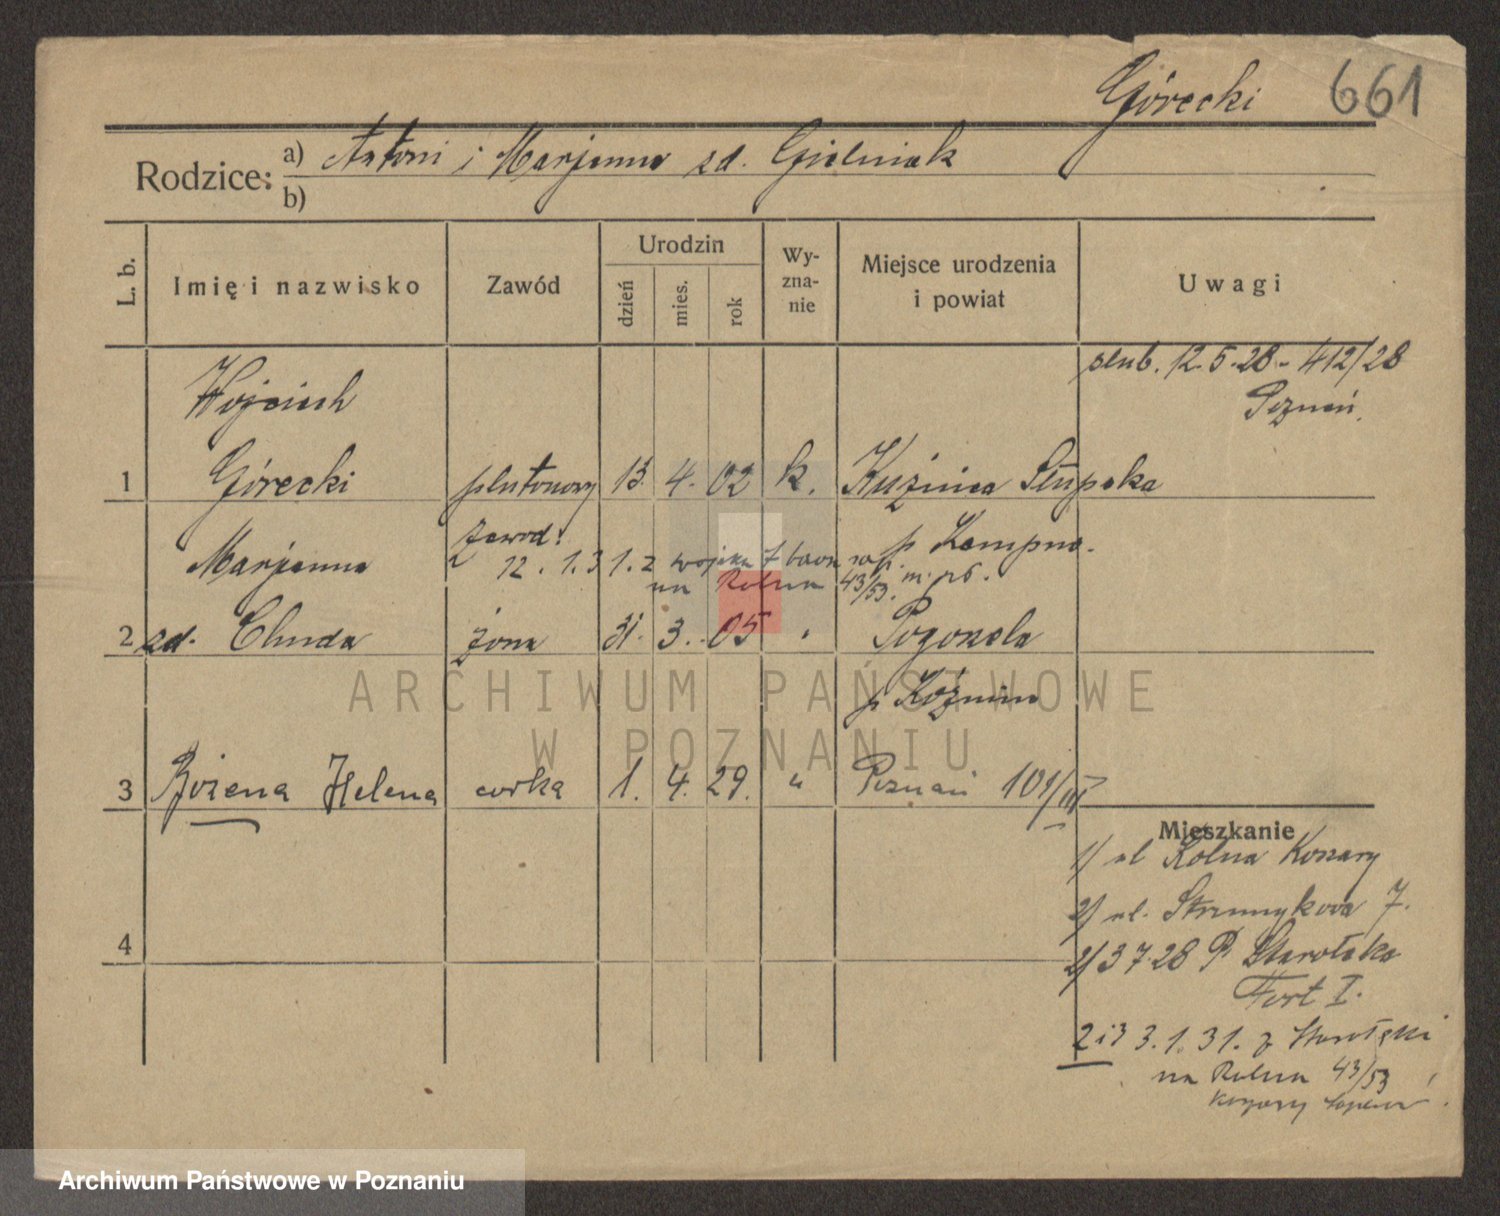 Górecki 661
Rodzice: a) Antoni i Marjanna zd. Gielniak
b)
L. b. Imię i nazwisko Zawód Urodzin dzień mies. rok Wy-zna-nie Miejsce urodzenia i powiat Uwagi
ślub. 12.5.28 - 412/28
Poznań.
Wojciech
1 Górecki plutonowy 13. 4. 02 k. Kuźnica Słupska
p Kempno.
Zawod:
12.1.31. z wojska 7 baon sap.
na Rolna 43/53.
Marjanna
2 zd. Chuda żona 31. 3. 05 " Pogorzela
p Koźmin
3 Bożena Helena corka 1. 4. 29. " Poznań 101/III
4
Mieszkanie
1/ ul Rolna Koszary
2/ ul. Strumykowa 7.
2/ 3 7 28 P. Starołęka
Fort I.
2 i 3 3.1.31. z Starołęki
na Rolna 43/53
koszary
ARCHIWUM PAŃSTWOWE
W POZNANIU
Archiwum Państwowe w Poznaniu